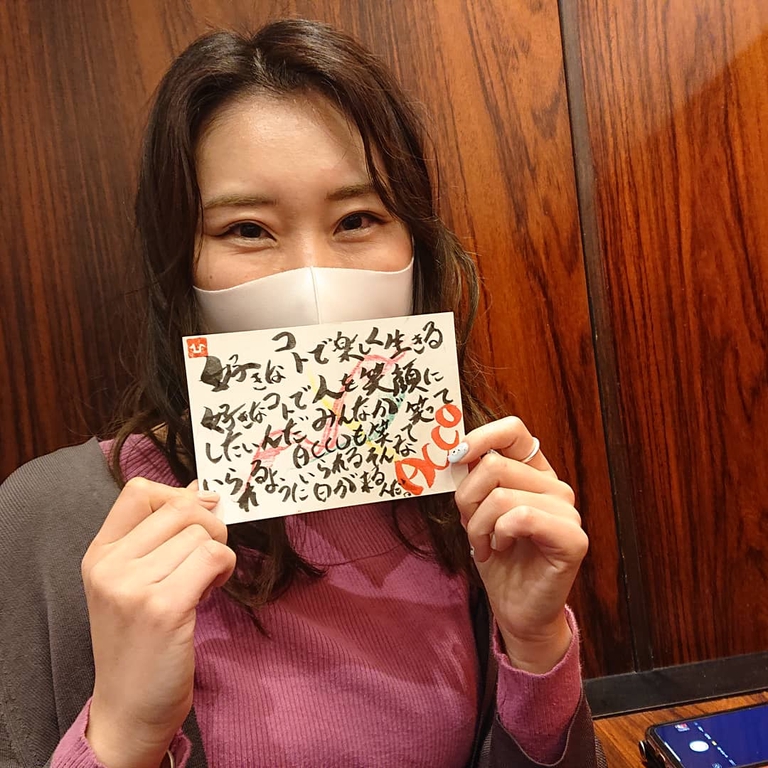 好きなコトで楽しく生きる
好きなコトで人を笑顔に
したいんだみんなが笑って
いられるようにACCOも笑って
いられるそんな
日が来るんだ。
ACCO